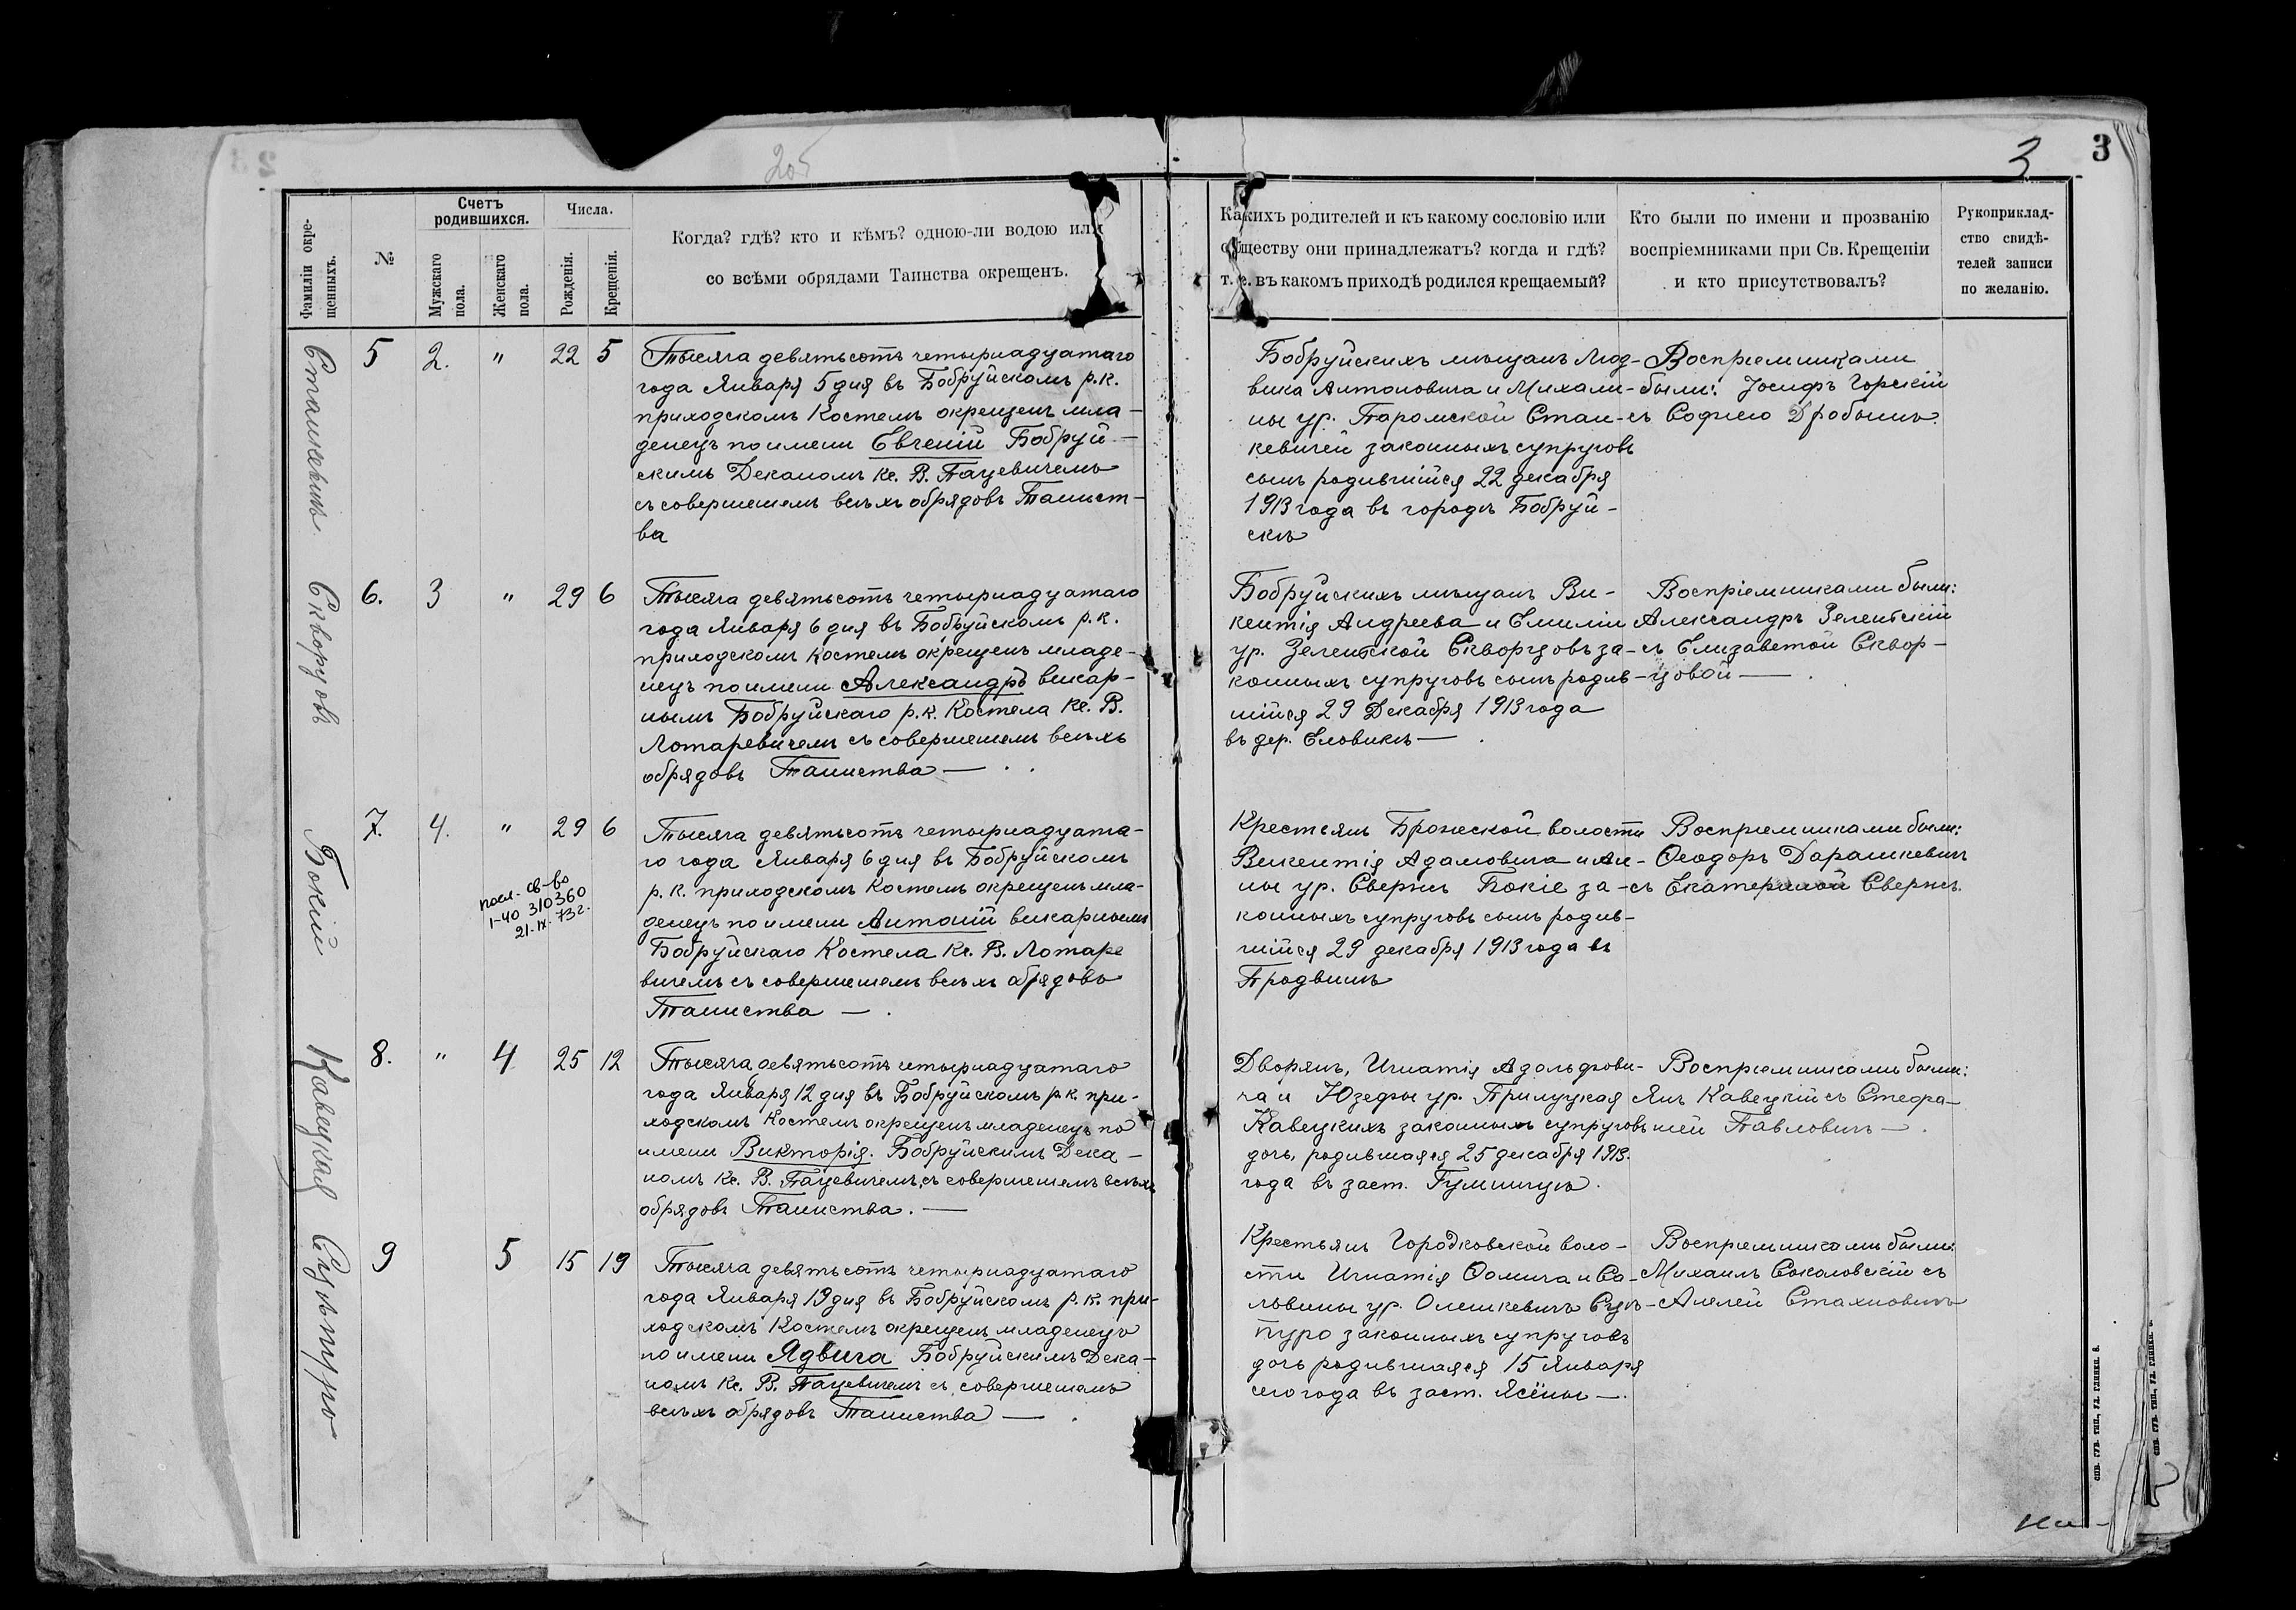 205
3
3
Фамиліи окре-
щенныхъ.
№
Счетъ
родившихся.
Мужскаго
пола.
Женскаго
пола.
Числа.
Рожденія.
Крещенія.
Когда? гдѣ? кто и кѣмъ? одною-ли водою или
со всѣми обрядами Таинства окрещенъ.
Какихъ родителей и къ какому сословію или
обществу они принадлежатъ? когда и гдѣ?
т. е. въ какомъ приходѣ родился крещаемый?
Кто были по имени и прозванію
воспріемниками при Св. Крещеніи
и кто присутствовалъ?
Рукоприклад-
ство свидѣ-
телей записи
по желанію.
Станкевичъ
5 2. " 22 5
Тысяча девятьсотъ четырнадцатаго
года Января 5 дня въ Бобруйскомъ р.к.
приходскомъ Костелѣ окрещенъ мла-
денецъ по имени Евгеній Бобруй-
скимъ Деканомъ Кс. В. Пацевичемъ
съ совершеніемъ всѣхъ обрядовъ Таинст-
ва
Бобруйскихъ мѣщанъ Люд-
вика Антоновича и Михали-
ны ур. Паромской Стан-
кевичей законныхъ супруговъ
сынъ родившійся 22 декабря
1913 года въ городѣ Бобруй-
скѣ
Воспріемниками
были: Іосифъ Горскій
съ Софіею Дробышъ.
Скворцовъ
6. 3 " 29 6
Тысяча девятьсотъ четырнадцатаго
года Января 6 дня въ Бобруйскомъ р.к.
приходскомъ Костелѣ окрещенъ младе-
нецъ по имени Александръ викар-
нымъ Бобруйскаго р.к. Костела Кс. В.
Лотаревичемъ съ совершеніемъ всѣхъ
обрядовъ Таинства — .
Бобруйскихъ мѣщанъ Ви-
кентія Андреева и Емиліи
ур. Зелентской Скворцовъ за-
конныхъ супруговъ сынъ родив-
шійся 29 Декабря 1913 года
въ дер. Еловикѣ — .
Воспріемниками были:
Александръ Зелентскій
съ Елизаветой Сквор-
цовой — .
Бокій
7. 4. " 29 6
посл. св-во
1-40 310360
21.IX.73г.
Тысяча девятьсотъ четырнадцата-
го года Января 6 дня въ Бобруйскомъ
р.к. приходскомъ Костелѣ окрещенъ мла-
денецъ по имени Антоній викарнымъ
Бобруйскаго Костела Кс. В. Лотаре
вичемъ съ совершеніемъ всѣхъ обрядовъ
Таинства — .
Крестьянъ Брожской волости
Викентія Адамовича и Ан-
ны ур. Свержъ Бокіе за-
конныхъ супруговъ сынъ родив-
шійся 29 декабря 1913 года въ
Продвинѣ
Воспріемниками были:
Ѳеодоръ Дарашкевичъ
съ Екатериной Свержъ.
Кавецкая
8. " 4 25 12
Тысяча девятьсотъ четырнадцатаго
года Января 12 дня въ Бобруйскомъ р.к. при-
ходскомъ Костелѣ окрещенъ младенецъ по
имени Викторія. Бобруйскимъ Дека-
номъ Кс. В. Пацевичемъ, съ совершеніемъ всѣхъ
обрядовъ Таинства. —
Дворянъ, Игнатія Адольфови-
ча и Юзефы ур. Прилуцкая
Кавецкихъ законныхъ супруговъ
дочь, родившаяся 25 декабря 1913.
года въ заст.
Воспріемниками были:
Янъ Кавецкій съ Стефа-
ніей Павловичъ — .
Суѣпуро
9 5 15 19
Тысяча девятьсотъ четырнадцатаго
года Января 19 дня въ Бобруйскомъ р.к. при-
ходскомъ Костелѣ окрещенъ младенецъ
по имени Ядвига Бобруйскимъ Дека-
номъ Кс. В. Пацевичемъ съ совершеніемъ
всѣхъ обрядовъ Таинства — .
Крестьянъ Городковской воло-
сти Игнатія Ѳомича и Са-
львины ур. Олешкевичъ Суѣ-
пуро законныхъ супруговъ
дочь родившаяся 15 Января
сего года въ заст. Ясёны — .
Воспріемниками были:
Михаилъ Соколовскій съ
Анелей Стахновичъ
СПБ. ГУБ. ТИП., УЛ. ГЛИНКИ. 8.